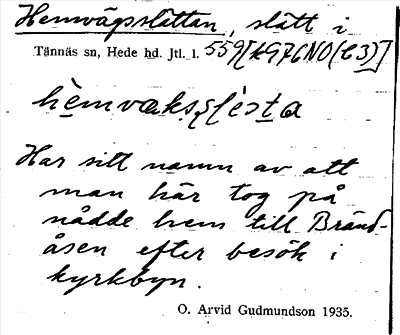 Hemvägsslåttan, slått i
Tännäs sn, Hede hd. Jtl. l. 559[HG76NO(C3)]
Har sitt namn av att
man här tog på
nådde hem till Bränd-
åsen efter besök i
kyrkbyn.
O. Arvid Gudmundson 1935.